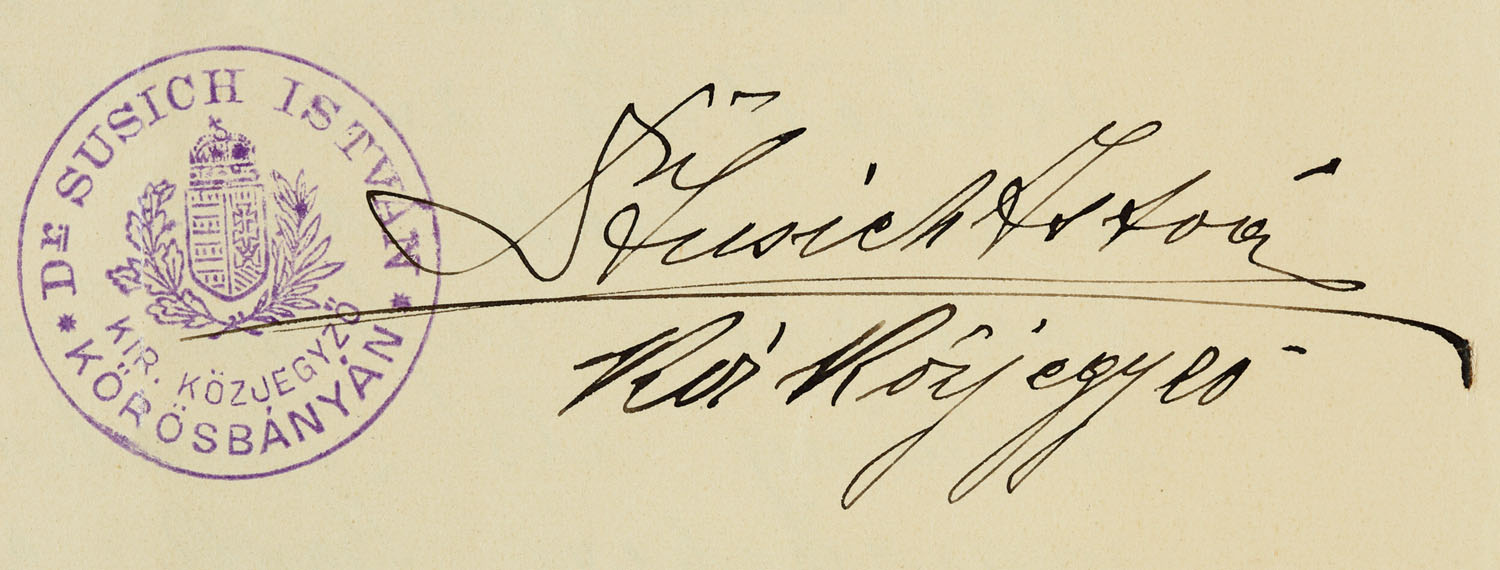 Dr SUSICH ISTVÁN
KIR. KÖZJEGYZŐ
KŐRÖSBÁNYÁN
Dr Susich István
kir közjegyző